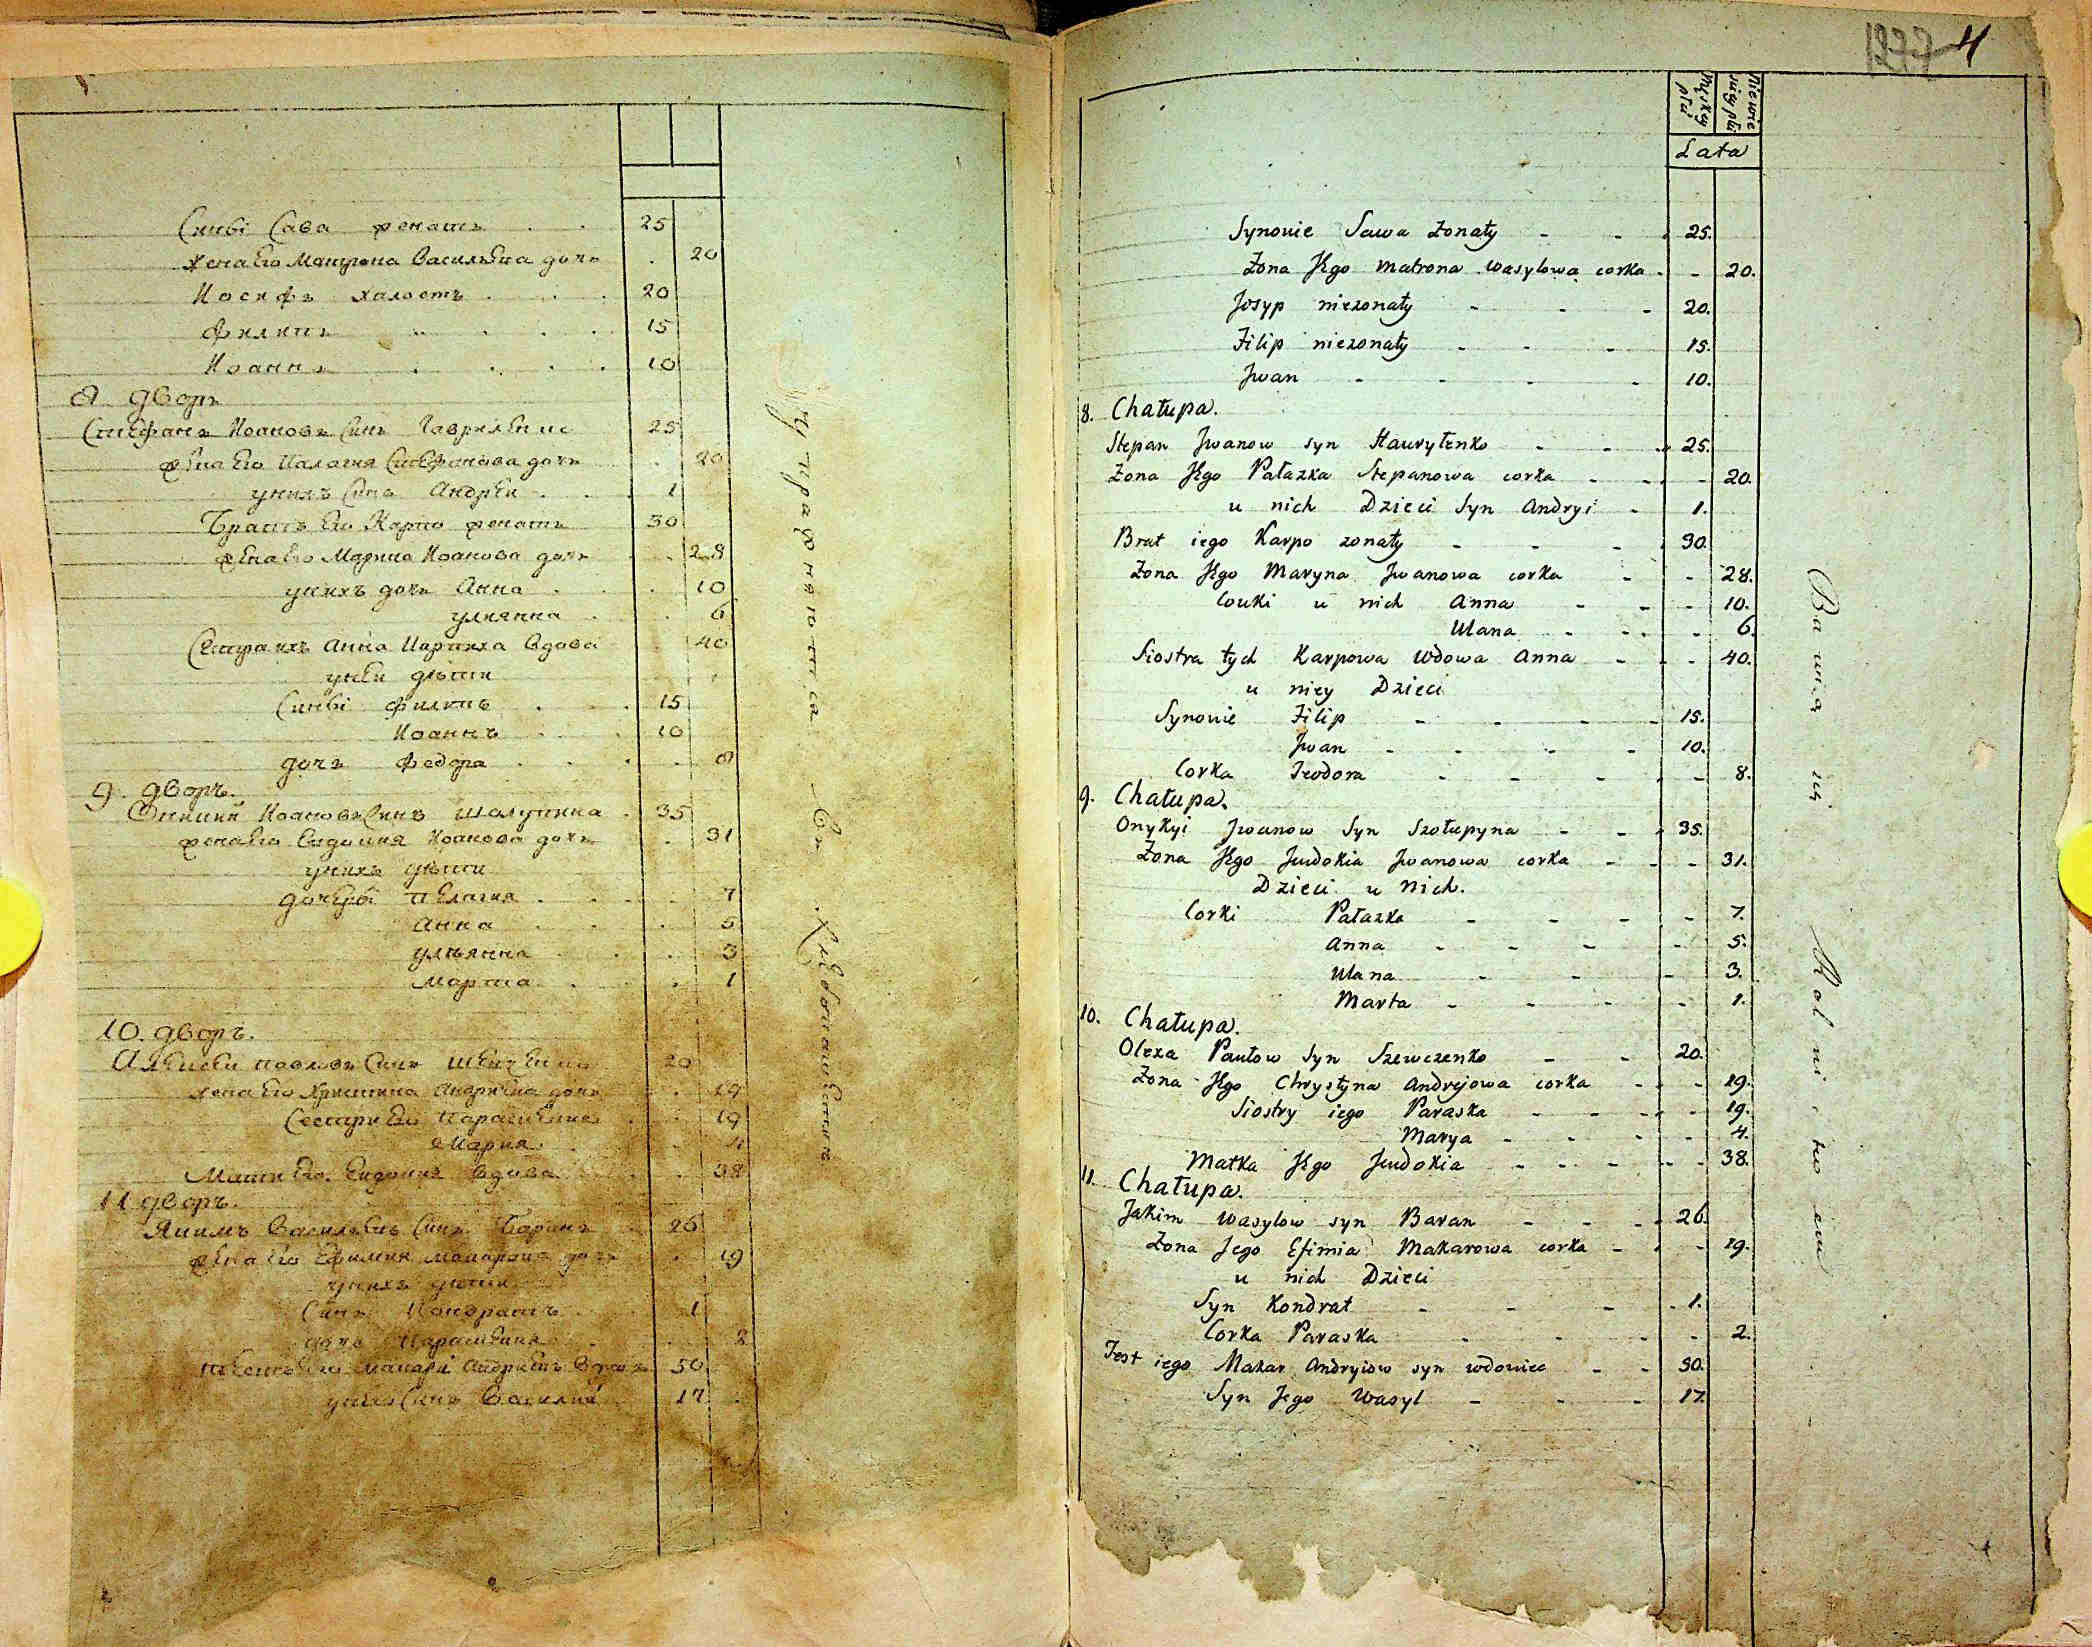 Сынві Сава женатъ 25
жена Его Матрона Васильева дочь 20
Иосифъ халостъ 20
Филипъ 15
Иоаннъ 10
8 дворъ
Стефанъ Иоановъ Синъ Гавриленко 25
жена Его Палагия Стефанова дочь 20
унихъ Синъ Андрей 1
Братъ Его Карпо женатъ 30
жена Его Марина Иоанова дочь 28
унихъ дочь Анна 10
улиянна 6
Сестра ихъ Анна Карпиха вдова 40
унеи дѣти
Сынві Филипъ 15
Иоаннъ 10
дочь Федора 8
9 дворъ.
Оникий Иоановъ Синъ Шолупина 35
жена Его Евдокия Иоанова дочь 31
унихъ дѣти
дочері Пелагия 7
Анна 5
ульянна 3
Марта 1
10. дворъ.
Алексей Павловъ Синъ Шевченко 20
жена Его Христина Андреева дочь 19
Сестри Его Параскевия 19
Мария 4
Мати Его Евдокия вдова 38
11 дворъ.
Якимъ Васильевъ Синъ Баранъ 26
жена Его Ефимия Макарова дочь 19
унихъ дѣти
Синъ Кондратъ 1
дочь Параскевия 2
тесть Его Макарй Андреевъ вдовъ 50
унего Синъ Василий 17
Упражняются въ Хлебопашестве
1277 4
Męzkey płci
Niewieściey płci
Lata
Synowie Sawa żonaty 25.
Żona Jego Matrona Wasylowa corka 20.
Josyp nieżonaty 20.
Filip nieżonaty 15.
Jwan 10.
8. Chałupa.
Stepan Jwanow syn Hawryłenko 25.
Żona Jego Pałazka Stepanowa corka 20.
u nich Dzieci Syn Andryi 1.
Brat iego Karpo zonaty 30.
Żona Jego Maryna Jwanowa corka 28.
Corki u nich Anna 10.
Ulana 6.
Siostra tych Karpowa Wdowa Anna 40.
u niey Dzieci
Synowie Filip 15.
Jwan 10.
Corka Teodora 8.
9. Chałupa.
Onykyi Jwanow Syn Szołupyna 35.
Żona Jego Jewdokia Jwanowa corka 31.
Dzieci u nich.
Corki Pałazka 7.
Anna 5.
Ulana 3.
Marta 1.
10. Chałupa.
Olexa Pawłow Syn Szewczenko 20.
Żona Jego Chrystyna Andrejowa corka 19.
Siostry iego Paraska 19.
Marya 4.
Matka Jego Jewdokia 38.
11. Chałupa.
Jakim Wasylow syn Baran 26.
Żona Jego Efimia Makarowa corka 19.
u nich Dzieci
Syn Kondrat 1.
Corka Paraska 2.
Test iego Makar Andryiow syn wdowiec 50.
Syn Jego Wasyl 17.
Bawią się Rolnictwem